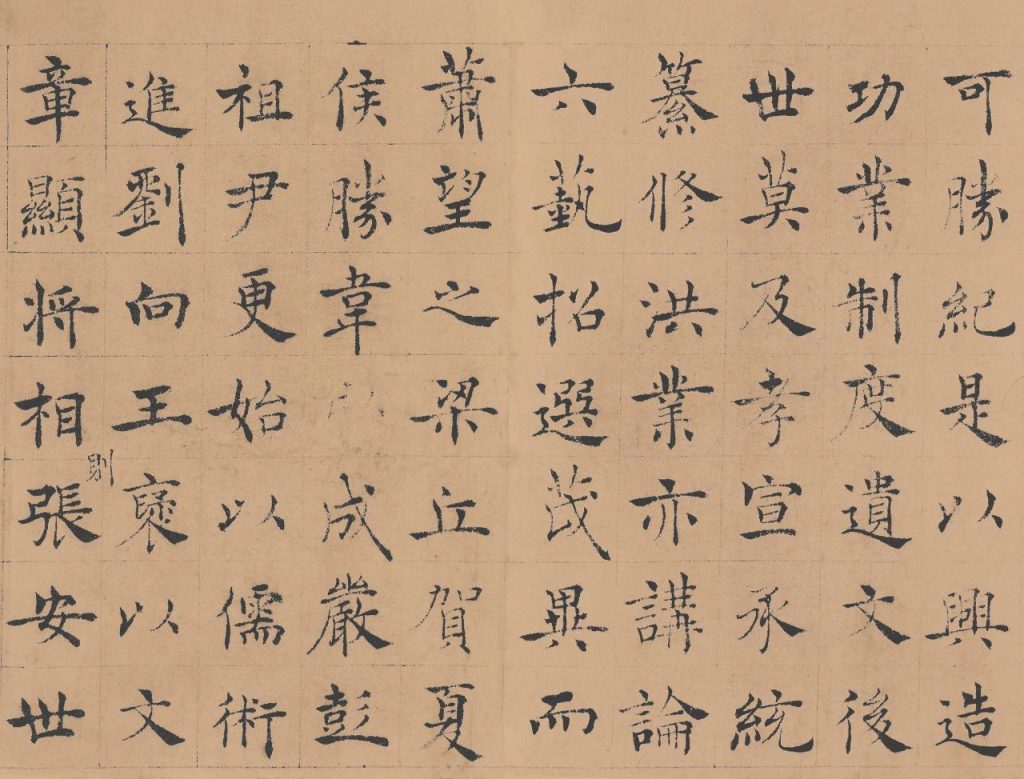 可勝紀是以興造
功業制度遺文後
世莫及孝宣承統
纂修洪業亦講論
六藝招選茂異而
蕭望之梁丘賀夏
侯勝韋成嚴彭
祖尹更始以儒術
進劉向王褒以文
章顯将相則張安世